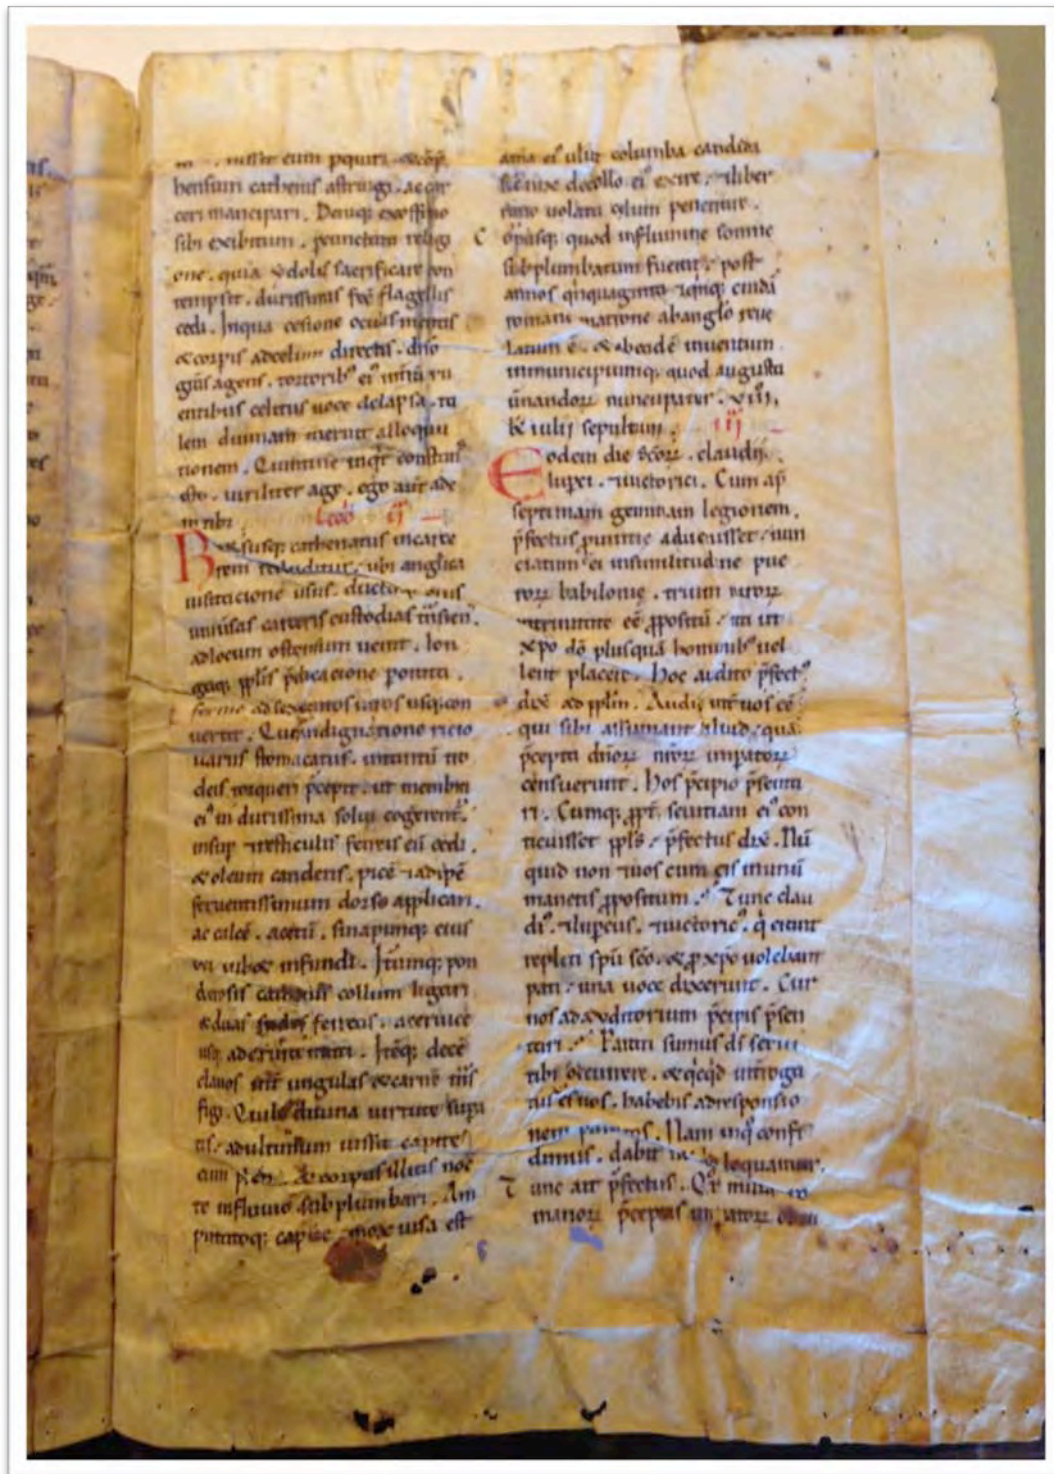 iussit eum pquiri. & cōp̄
hensum cathenis astringi. ac car
ceri mancipari. Demuq;
sibi exibitum.
one. quia ydolis sacrificare con
tempsit. durissimis fec̄ flagellis
cedi. Inqua cesione oculis mentis
& corpis adcelum directis.
gr̄as agens. tortorib⁹ ei⁹
entibus celitus uoce delapsa. ta
lem diuinam meruit alloquu
tionem. inqt̄ constans
esto. uiriliter age. ego aut̄ ade
ro tibi. Lectio ij
R&susq; cathenatus incarce
rem retruditur. ubi anglica
uisitacione usus. ductore eius
custodias
adlocum ostensum uenit. lon
gaq; pplis p̄dicacione potitus.
ferme adsexcentos uiros usq; con
uertit. indignatione ricio
uarus stomacatus.
deis torqueri p̄cepit. ut membra
ei⁹ in durissima solui cogerent̄.
insup & testiculis ferreis eū cedi.
& oleum candens. picē & adipē
feruentissimum dorso applicari.
ac calcē. acetū. sinapimq; eius
infundi. Itūmq; pon
derosis cathenis collum ligari
& duas ferreas. aceruice
Itēq; decē
clauos ungulas & carnē
figi. diuina uirtute supa
tis. adultimum iussit capite
& corpus illius
te influuio subplumbari. Am
putatoq; capite. mox uisa est
aīa ei⁹ uelut columba candida
decollo ei⁹ exire. & liber
rimo uolatu celum penetrare.
Corpusq; quod influmine somne
subplumbatum fuerat. post
annos qīnquaginta & qīnq; cuidā
romane matrone abanglo reue
latum ē. & abeadē inuentum
inmunicipiumq; quod augusta
uīmandorꝝ nuncupatur. viij.
kł iulij sepultum. iij
Eodem die scōrꝝ. claudij.
luperci. & uictorici. Cum ap̄
septimam geminam legionem.
p̄fectus prouintie aduenisset. nun
ciatum ei⁹ insimilitudine pue
rorꝝ babilonie. trium uirorꝝ
eē ppositū. ita ut
xpo dō plusquā hominib⁹ uel
lent placere. Hoc audito p̄fect⁹
dix̄ ad pplm̄. Audi, int̄ uos eē
qui sibi assumant aliud. quā
p̄cepta dn̄orꝝ nr̄orꝝ impatorꝝ
censuerunt. Hos p̄cipio p̄senta
ri. Cumq; ppt̄ seuitiam ei⁹ con
ticuisset ppl̄s. p̄fectus dix̄. Nū
quid non & uos cum eis inunū
manetis ppositum. Tunc clau
di⁹. & luperc⁹. & uictoric⁹. qi erant
repleti spū scō. & p xpo uolebant
pati. una uoce dixerunt. Cur
nos adauditorium p̄cipis p̄sen
tari. Parati sumus dī serui
tibi occurrere. & qīcqīd int̄roga
tur⁹ es nos. habebis adresponsio
nem paratos. Nam inqō confi
dimus. dabit loquamur.
Tunc ait p̄fectus. Qr̄
maniorꝝ p̄ceptis